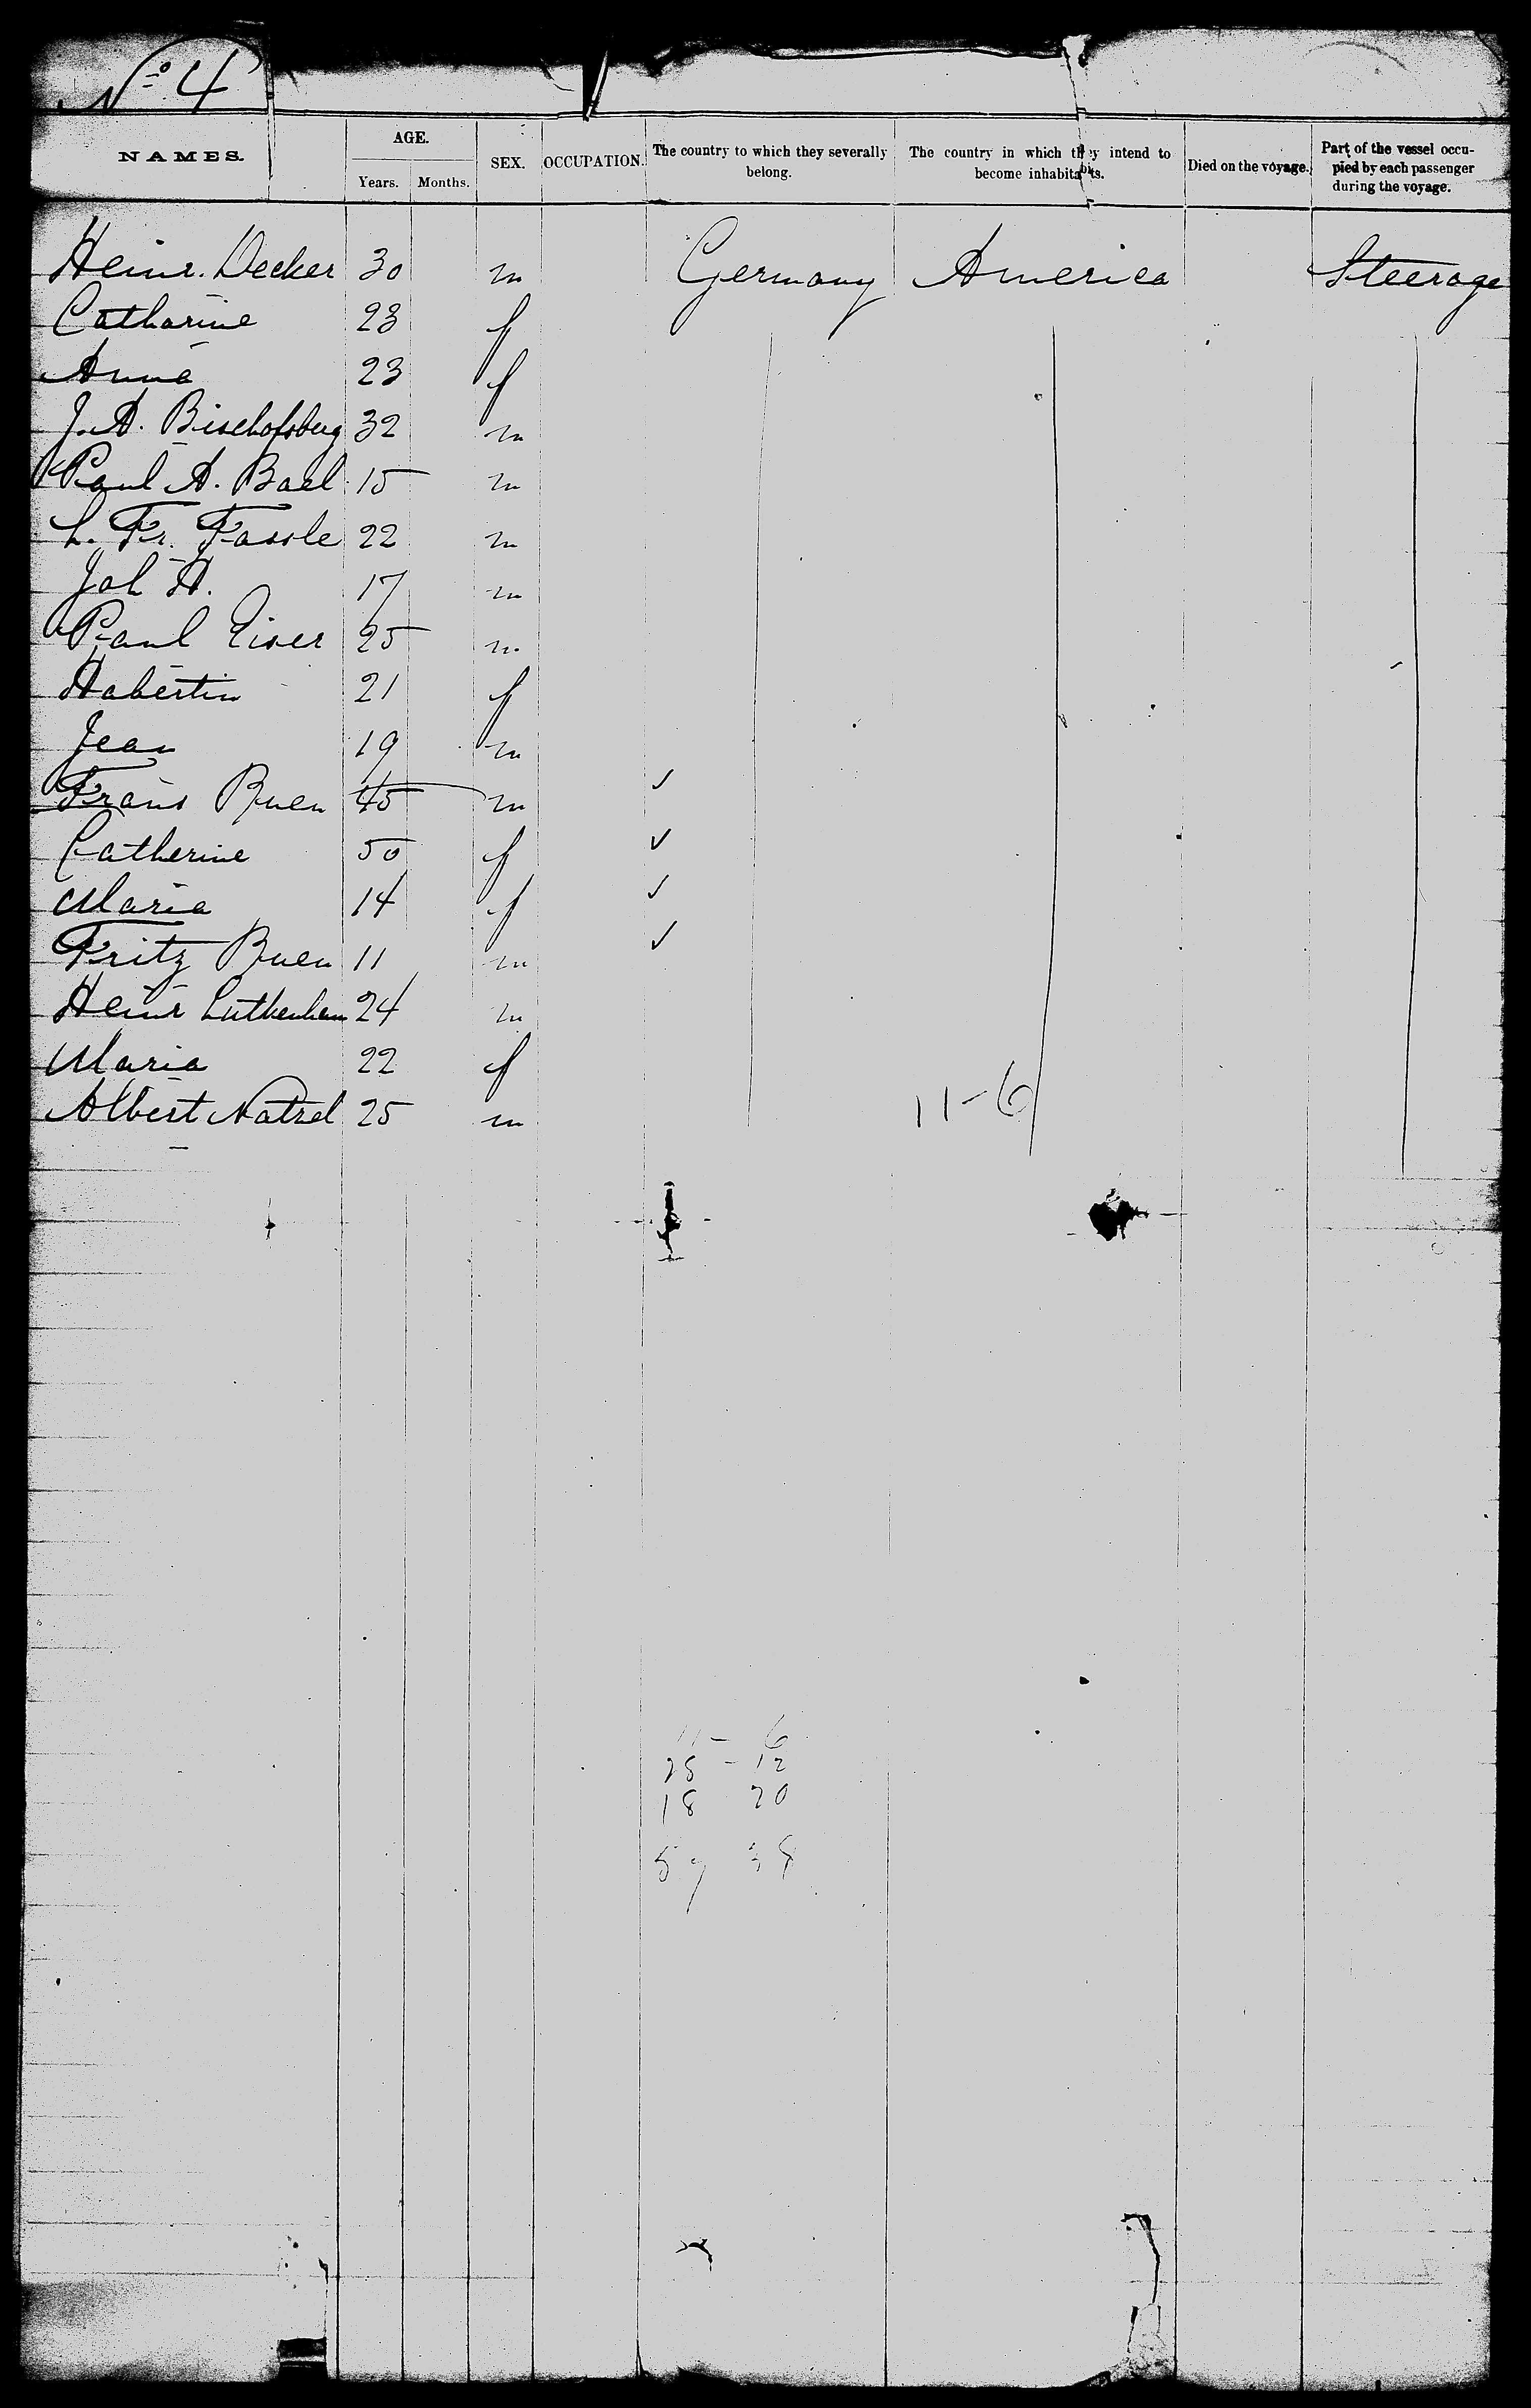 Nº 4
NAMES. AGE. Years. Months. SEX. OCCUPATION. The country to which they severally belong. The country in which they intend to become inhabitants. Died on the voyage. Part of the vessel occupied by each passenger during the voyage.
Heinr. Decker 30 m Germany America Steerage
Catharine 23 f
Anna 23 f
J. A. Bischofsberg 32 m
Paul A. Bael 15 m
L. Fr. Fassle 22 m
Joh A. 17 m
Paul Eiser 25 m
Habertin 21 f
Jean 19 m
Frans Buen 45 m ✓
Catherine 50 f ✓
Maria 14 f ✓
Fritz Buen 11 m ✓
Heinr Luthenham 24 m
Maria 22 f
Albert Natzel 25 m 11-6
11 - 6
28 - 12
18 20
57 38